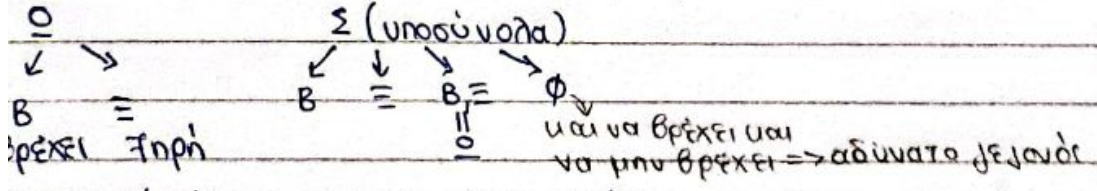 Ω Σ (υποσύνολα)
Β Ξ Β Ξ Β Ξ Φ
βρέχει Ξηρή || και να βρέχει και
Ω να μην βρέχει => αδύνατο γεγονός